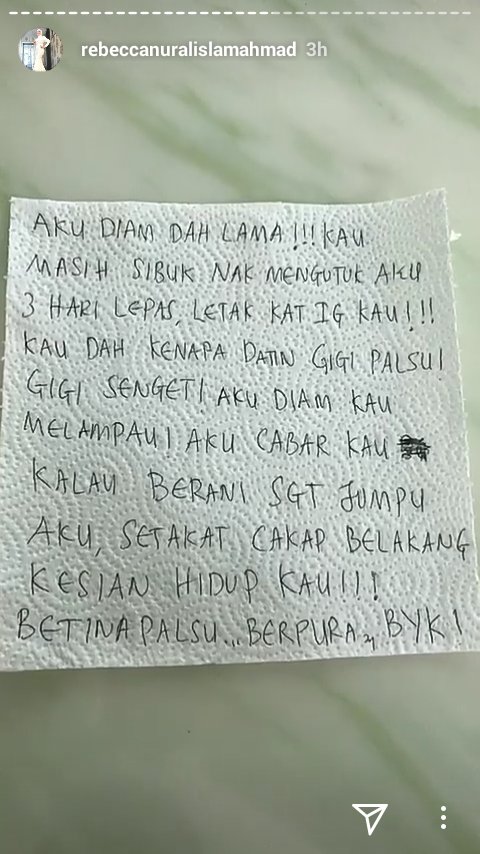 rebeccanuralislamahmad 3h
AKU DIAM DAH LAMA!!! KAU
MASIH SIBUK NAK MENGUTUK AKU
3 HARI LEPAS, LETAK KAT IG KAU!!!
KAU DAH KENAPA DATIN GIGI PALSU!
GIGI SENGET! AKU DIAM KAU
MELAMPAU! AKU CABAR KAU
KALAU BERANI SGT JUMPU
AKU, SETAKAT CAKAP BELAKANG
KESIAN HIDUP KAU!!!
BETINA PALSU... BERPURA2, BYK!